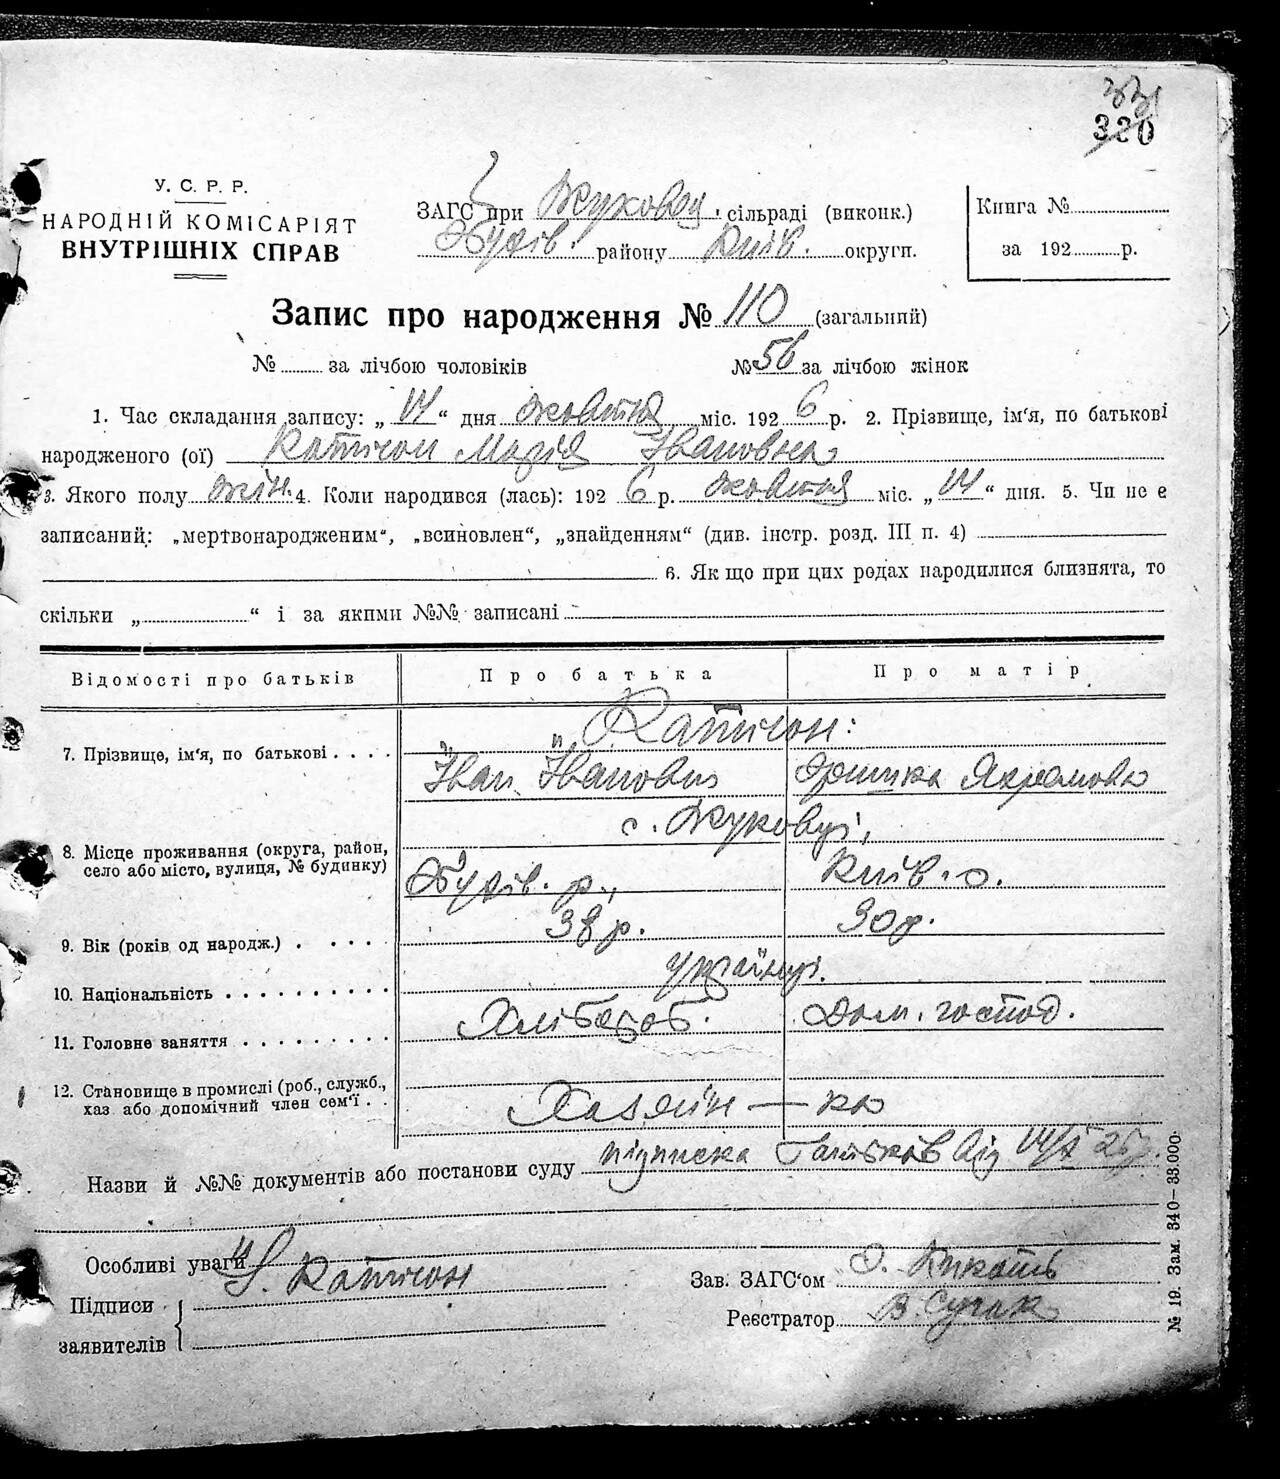 331
320
У. С. Р. Р.
НАРОДНІЙ КОМІСАРІЯТ
ВНУТРІШНІХ СПРАВ
ЗАГС при Жуковец. сільраді (виконк.)
району Київ. округи.
Книга №
за 192 р.
Запис про народження № 110 (загальний)
№ за лічбою чоловіків № 56 за лічбою жінок
1. Час складання запису: „14“ дня жовтня міс. 1926 р. 2. Прізвище, ім'я, по батькові
народженого (ої) Катічон Марія Івановна
3. Якого полу жін. 4. Коли народився (лась): 1926 р. жовтня міс. „14“ дня. 5. Чи не є
записаний: „мертвонародженим“, „всиновлен“, „знайденням“ (див. інстр. розд. III п. 4)
6. Якщо при цих родах народилися близнята, то
скільки „ “ і за якими №№ записані
Відомості про батьків Про батька Про матір
Катічон:
7. Прізвище, ім'я, по батькові
Іван Іванович Яхремовна
с. Жуковці,
8. Місце проживання (округа, район,
село або місто, вулиця, № будинку)
р., Київ. о.
38 р. 30 р.
9. Вік (років од народж.)
українці.
10. Національність
Хлібороб. Дом. господ.
11. Головне заняття
12. Становище в промислі (роб., служб.,
хаз. або допомічний член сем'ї
Хазяїн — ка
Назви й №№ документів або постанови суду підписка батьків від 14/X 26 р.
Особливі уваги
І. Катічон
Підписи
заявителів
Зав. ЗАГС'ом
Реєстратор
№ 19. Зам. 340—33.000.